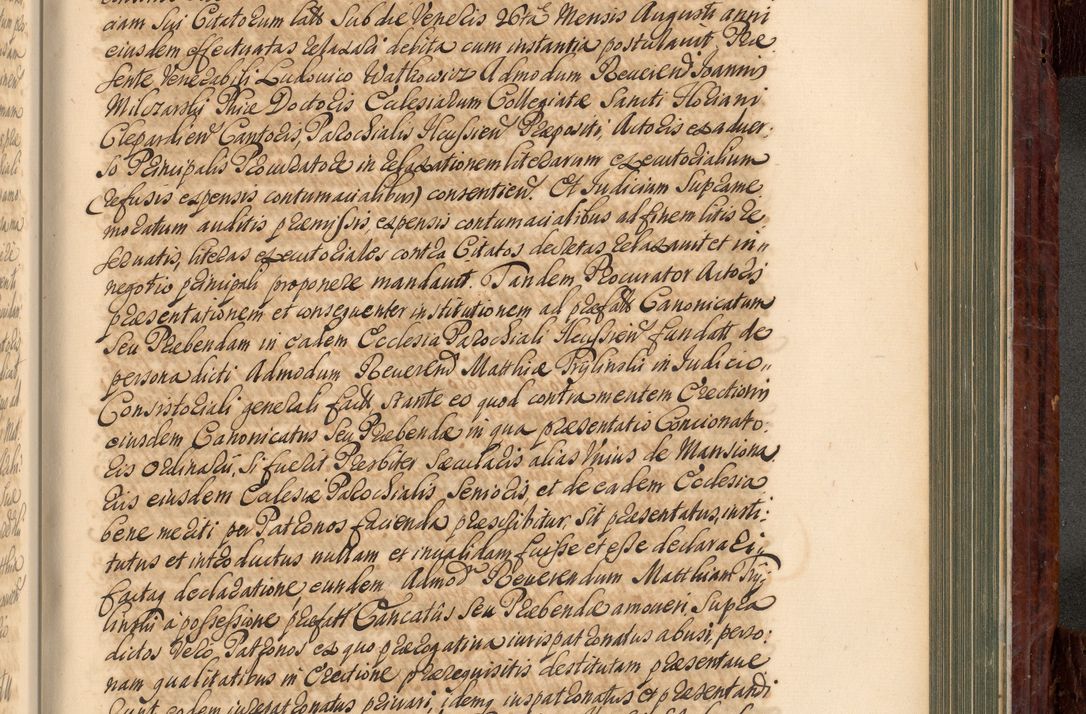 ciam sui Citatorum latt Sub die Veneris 26ta Mensis Augusti anni
eiusdem effectuatas relaxari debita cum instantia postulavit, Præ
sente Venerabili Ludovico Watkowicz Admodum Reverendi Joannis
Milczarski Phiæ Doctoris Ecclesiarum Collegiatæ Sancti Floriani
Clepardien Cantoris, Parochialis Præpositi, Actoris ex adver
so Principalis Procuratore in relaxationem literarum executorialium
(refusis expensis contumacialibus) consentien. Et Judicium Supreme
moratum auditis præmissis, expensis contumacialibus ad finem litis re
servatis, literas executoriales contra Citatos decretas relaxavit et in„
negotio principali proponere mandavit. Tandem Procurator Actoris
præsentationem et consequenter institutionem ad præfatt Canonicatum
seu Præbendam in eadem Ecclesia Parochiali fundatt de
persona dicti Admodum Reverend Matthiæ Trylinski in Judicio„
Consistoriali generali fact Stante eo quod contra mentem Erectionis
eiusdem Canonicatus Seu Præbendæ in qua præsentatio Concionato:
ris Ordinarii, Si fuerit Presbiter Sæcularis alias Unius de Mansiona
riis eiusdem Ecclesiæ Parochialis Senioris, et de eadem Ecclesia
bene meriti per Patronos facienda præscribitur, Sit præsentatus, insti:
tutus et introductus nullam et invalidam fuisse et esse declarari,
factaq declaratione eundem Admod Reverendum Matthiam Try:
linski a possessione præfatt Cancatus Seu Præbendæ amoveri, Supra
dictos Vero Patronos ex quo prærogativa iurispatronatus abusi, perso:
nam qualitatibus in Erectione prærequisitis destitutam præsentave
runt eodem iurepatronatus privari, idemq iuspatronatus et præsentandi